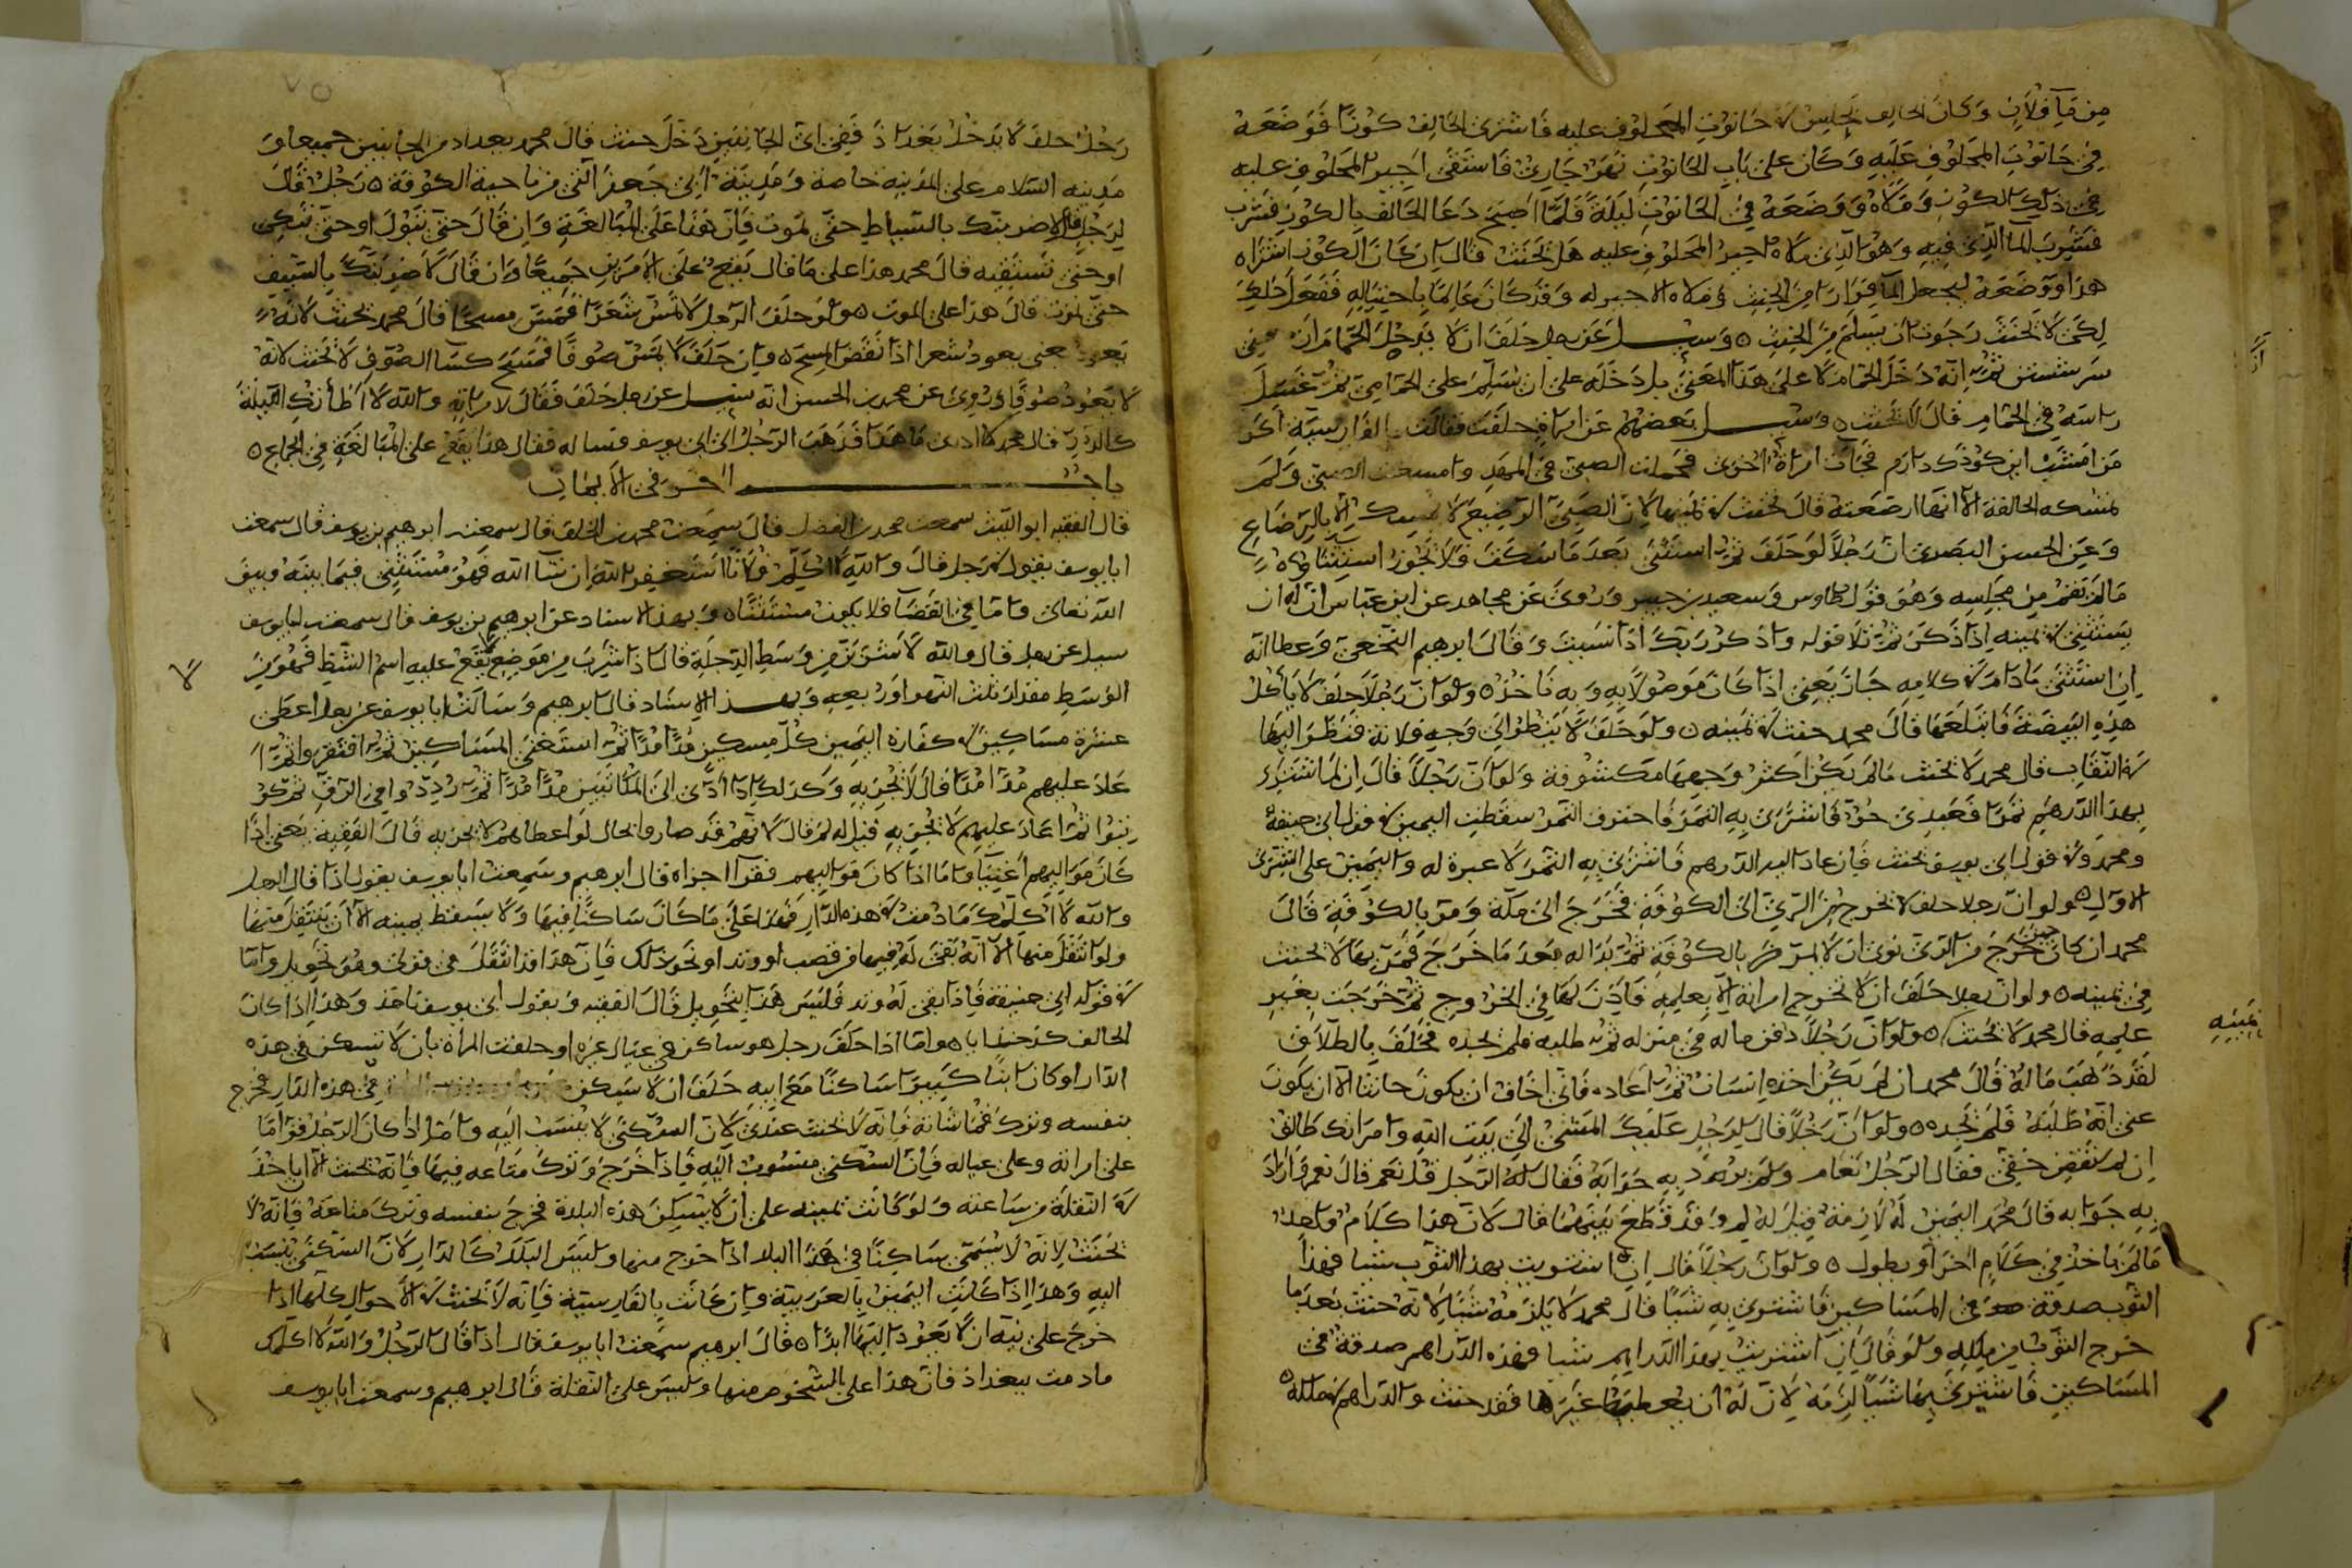 من ماء فلان وكان الحالف يجلس في حانوت المحلوف عليه فاشترى الحالف كوزا فوضعه
في حانوت المحلوف عليه وكان على باب الحانوت نهر جاري فاستقى اجير المحلوف عليه
في ذلك الكوز وملاه ووضعه في الحانوت ليلة فلما اصبح دعا الحالف بالكوز فشرب
فشرب الما الذي فيه وهو الذي ملاه اجير المحلوف عليه هل يحنث قال ان كان الكوز اشتراه
هذا ووضعه ليجعل الما فرارا من الحنث وملاه الاجير له وقد كان عالما باحتياله ففعل ذلك
لكي لا يحنث رجوت ان يسلم من الحنث وسيل عن رجل حلف ان لا يدخل الحمام
انه دخل الحمام لا على هذا المعنى بل دخله على ان يسلم على الحمامي ثم غسل
راسه في الحمام قال لا يحنث وسيل بعضهم عن امراة حلفت فقالت بالفارسية اكر
من امشب اين كودك دارم فجات امراة اخرى فحملت الصبي في المهد وامسكت الصبي ولم
تمسكه الحالفة الا انها ارضعته قال تحنث في يمينها لان الصبي الرضيع لا يمسك الا بالرضاع
وعن الحسن البصري ان رجلا لو حلف ثم استثنى بعد ما سكت فلا يجوز استثناؤه
ما لم يقم من مجلسه وهو قول طاوس وسعيد بن جبير وروي عن مجاهد عن ابن عباس ان له ان
يستثني في يمينه اذا ذكر ثم تلا قوله واذكر ربك اذا نسيت وقال ابرهيم النخعي وعطا انه
ان استثنى ما دام في كلامه جاز يعني اذا كان موصولا به وبه ناخذ ولو ان رجلا حلف لا ياكل
هذه البيضة فابتلعها قال محمد حنث في يمينه ولو حلف لا ينظر الى وجه فلانة فنظر اليها
في النقاب قال محمد لا يحنث ما لم يكن اكثر وجهها مكشوفة ولو ان رجلا قال ان لم اشتر
بهذا الدرهم تمرا فعبدي حر فاشترى به التمر فاحترف التمر سقطت اليمين في قول ابي حنيفة
ومحمد وفي قول ابي يوسف يحنث فان عاد اليه الدرهم فاشترى به التمر لا عبرة له واليمين على الشرى
الاول ولو ان رجلا حلف لا يخرج من الري الى الكوفة فخرج الى مكة ومر بالكوفة قال
محمد ان كان حين خرج من الري نوى ان لا يمر بالكوفة ثم بدا له بعد ما خرج فمر بها لا يحنث
في يمينه ولو ان رجلا حلف ان لا تخرج امراته الا بعلمه فاذن لها في الخروج ثم خرجت بغير
علمه قال محمد لا يحنث ولو ان رجلا دفن ماله في منزله ثم طلبه فلم يجده فحلف بالطلاق
لقد ذهب ماله قال محمد ان لم يكن اخذه انسان ثم اعاده فاني اخاف ان يكون حانثا الا ان يكون
عنى انه طلبه فلم يجده ولو ان رجلا قال لرجل عليك المشي الى بيت الله وامراتك طالق
ان لم تقض حقي فقال الرجل نعم ولم يرد به جوابه فقال له الرجل قل نعم قال نعم واراد
به جوابه قال محمد اليمين له لازمة قيل له لم وقد قطع بينهما قال لان هذا كلام واحد
ما لم ياخذ في كلام اخر او يطول ولو ان رجلا قال ان اشتريت بهذا الثوب شيا فهذا
الثوب صدقة في المساكين فاشترى به شيا قال محمد لا يلزمه شيا لانه حنث بعد ما
خرج الثوب من ملكه ولو قال ان اشتريت بهذا الدراهم شيا فهذه الدراهم صدقة في
المساكين فاشترى بها شيا لزمه لان له ان يعطيه غيرها فقد حنث والدراهم في ملكه
يمينه
٧٥
رجل حلف لا يدخل بغداذ ففي اي الجانبين دخل حنث قال محمد بغداد من الجانبين جميعا و
مدينة السلام على المدينة خاصة ومدينة ابي جعفر التي من ناحية الكوفة رجل قال
لرجل لاضربنك بالسياط حتى تموت فان هذا على المبالغة وان قال حتى تبول او حتى تبكي
او حتى تستغيث قال محمد هذا على ما قال يقع على الامرين جميعا وان قال لاضربنك بالسيف
حتى تموت قال هذا على الموت ولو حلف الرجل لا تمس شعرا فمس مسحا قال محمد يحنث لانه
يعود يعني يعود شعرا اذا نقض المسح وان حلف لا يمس صوفا فمسح كسا الصوف لا يحنث لانه
لا يعود صوفا وروي عن محمد بن الحسن انه سيل عن رجل حلف فقال لامراته والله لا اطانك الليلة
قال محمد لا ادري ما هذا فذهب الرجل الى ابي يوسف فساله فقال هذا يقع على المبالغة في الجماع
باب اخر في الايمان
قال الفقيه ابو الليث سمعت محمد بن الفضل قال سمعت محمد بن الخلف قال سمعت ابرهيم بن يوسف قال سمعت
ابا يوسف يقول في رجل قال والله لا اكلم فلانا استغفر الله ان شا الله فهو مستثني فيما بينه وبين
الله تعالى واما في القضا فلا يكون مستثنا وبهذا الاسناد عن ابرهيم بن يوسف قال سمعت ابا يوسف
سيل عن رجل قال والله لا شربن من وسط الدجلة قال اذا شرب من موضع يقع عليه اسم الشط فهو من
الوسط مقدار ثلث النهر او ربعه وبهذا الاسناد قال ابرهيم وسالت ابا يوسف عن رجل اعطى
عشرة مساكين في كفارة اليمين كل مسكين مدا مدا ثم استغنى المساكين ثم افتقروا ثم ا
عاد عليهم مدا مدا قال لا يجزيه وكذلك اذا ادى الى المكاتبين مدا مدا ثم رددوا في الرق ثم كو
تبوا ثم اعاد عليهم لا يجزيه قيل له لم قال لانهم قد صاروا بحال لو اعطاهم لا يجزيه قال الفقيه يعني اذا
كان مواليهم اغنيا واما اذا كان مواليهم فقرا اجزاه قال ابرهيم وسمعت ابا يوسف يقول اذا قال الرجل
والله لا اكلمك ما دمت في هذه الدار فهذا على ما كان ساكنا فيها ولا يسقط يمينه الا ان ينتقل منها
ولو انتقل منها الا انه بقي له فيها من قصب او وتد او نحو ذلك فان هذا قد انتقل في قولي وهو تحويل واما
في قول ابي حنيفة فاذا بقي له وتد فليس هذا بتحويل قال الفقيه وبقول ابي يوسف ناخذ وهذا اذا كان
الحالف كدخدايا واما اذا حلف رجل هو ساكن في عيال غيره او حلفت المراة بان لا تسكن في هذه
الدار او كان ابنا كبيرا ساكنا مع ابيه حلف ان لا يسكن في هذه الدار فخرج
بنفسه وترك قماشاته فانه لا يحنث عندي لان السكنى لا ينسب اليه واما اذا كان الرجل قواما
على امراته وعلى عياله فان السكنى منسوب اليه فاذا خرج وترك متاعه فيها فانه يحنث الا ان ياخذ
في النقلة من ساعته ولو كانت يمينه على ان لا يسكن هذه البلدة فخرج بنفسه وترك متاعه فانه لا
يحنث لانه لا يسمى ساكنا في هذا البلد اذا خرج منها وليس البلد كالدار لان السكنى ينسب
اليه وهذا اذا كانت اليمين بالعربية وان كانت بالفارسية فانه لا يحنث في الاحوال كلها اذا
خرج على نية ان لا يعود اليها ابدا قال ابرهيم سمعت ابا يوسف قال اذا قال الرجل والله لا اكلمك
ما دمت ببغداذ فان هذا على الشخوص منها وليس على النقلة قال ابرهيم وسمعت ابا يوسف